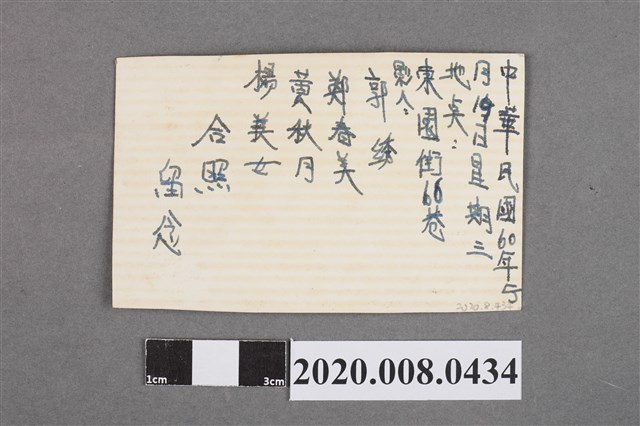 中華民國60年5
月19日星期三
地奌:
東園街66巷
影人:
郭
鄭春美
黃秋月
楊美女
合照
留念
2020.8.434
1cm 3cm
2020.008.0434